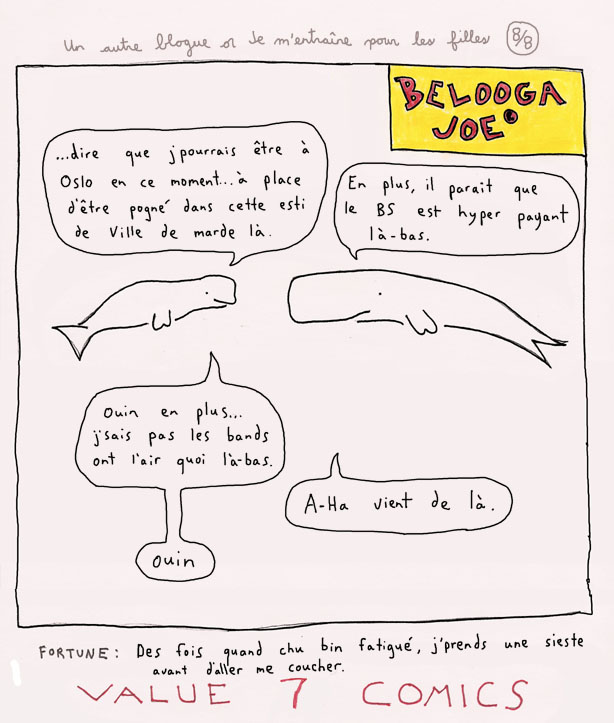 Un autre blogue où Je m'entraîne pour les filles 8/8
BELOOGA
JOE
...dire que j'pourrais être à
Oslo en ce moment... à place
d'être pogné dans cette esti
de Ville de marde là.
En plus, il parait que
le BS est hyper payant
là-bas.
Ouin en plus...
j'sais pas les bands
ont l'air quoi là-bas.
A-Ha vient de là.
Ouin
FORTUNE: Des fois quand chu bin fatigué, j'prends une sieste
avant d'aller me coucher.
VALUE 7 COMICS